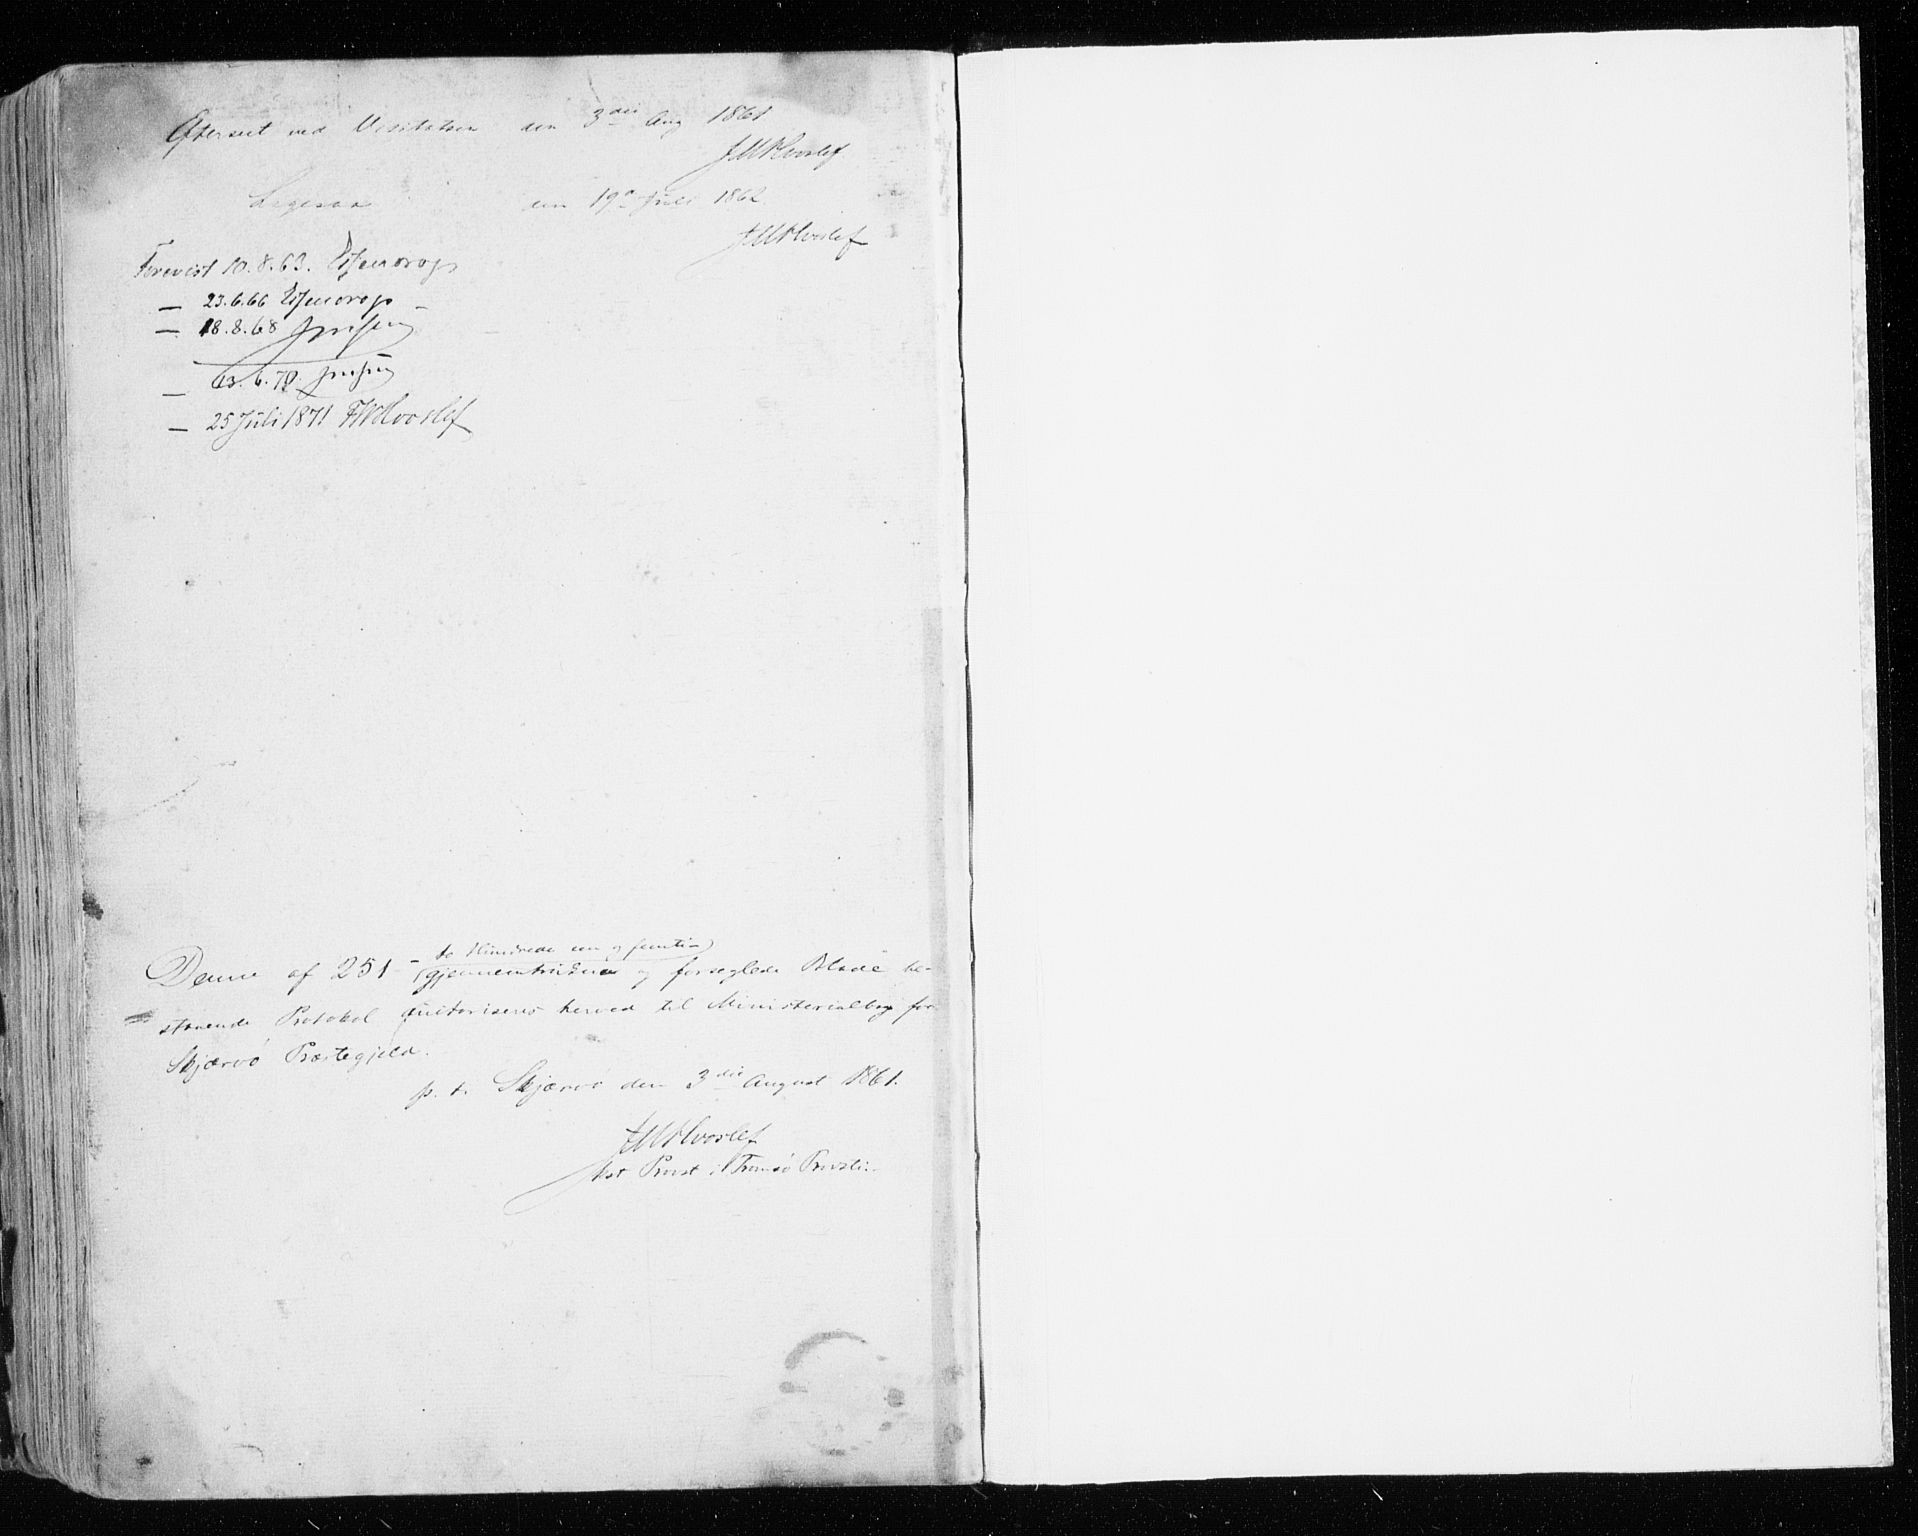 Efterseet ved Visitatsen den 3die Aug 1861
FWHvoslef
Ligesaa den 19de Juli 1862
FWHvoslef
Forevist 10.8.63.
— 23.6.66
— 18.8.68
— 6.70.
— 25 Juli 1871 FWHvoslef
to Hundrede een og femti
Denne af 251 - gjennemtrukne og forseglede Blade be-
staaende Protokol autoriseres herved til Ministerialbog for
Skjærvø Præstegjeld.
p. t. Skjærvø den 3die August 1861.
FWHvoslef
kst Provst i Tromsø Provsti.